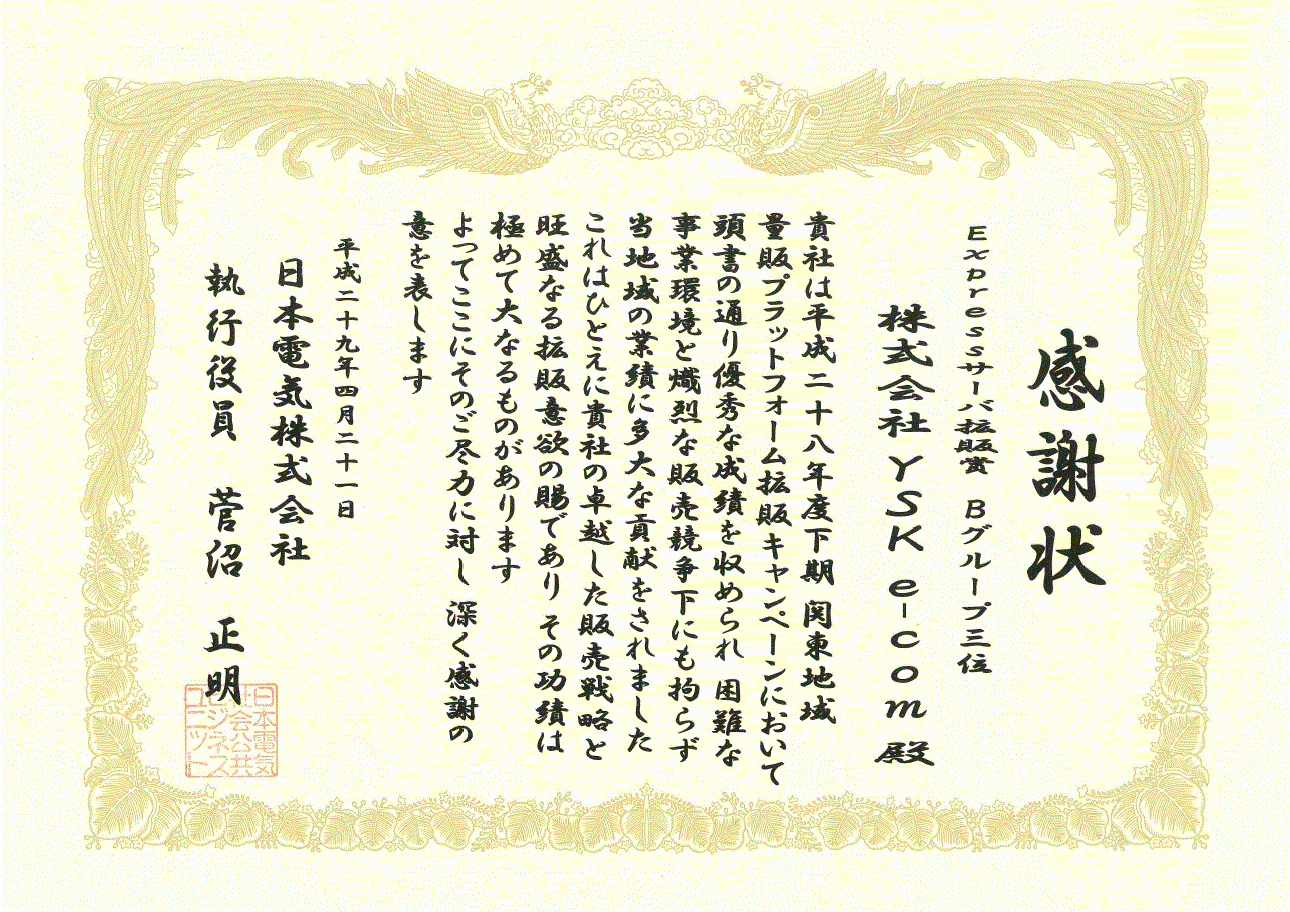 感謝状
Expressサーバ拡販賞 Bグループ三位
株式会社 YSK e-com 殿
貴社は平成二十八年度下期関東地域
量販プラットフォーム拡販キャンペーンにおいて
頭書の通り優秀な成績を収められ 困難な
事業環境と熾烈な販売競争下にも拘らず
当地域の業績に多大な貢献をされました
これはひとえに貴社の卓越した販売戦略と
旺盛なる拡販意欲の賜であり その功績は
極めて大なるものがあります
よってここにそのご尽力に対し 深く感謝の
意を表します
平成二十九年四月二十一日
日本電気株式会社
執行役員 菅沼 正明
日本電気
社会公共
ビジネス
ユニット